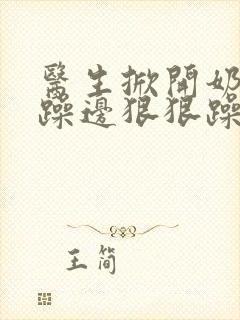 醫生掀開奶
躁邊狠狠躁
王简